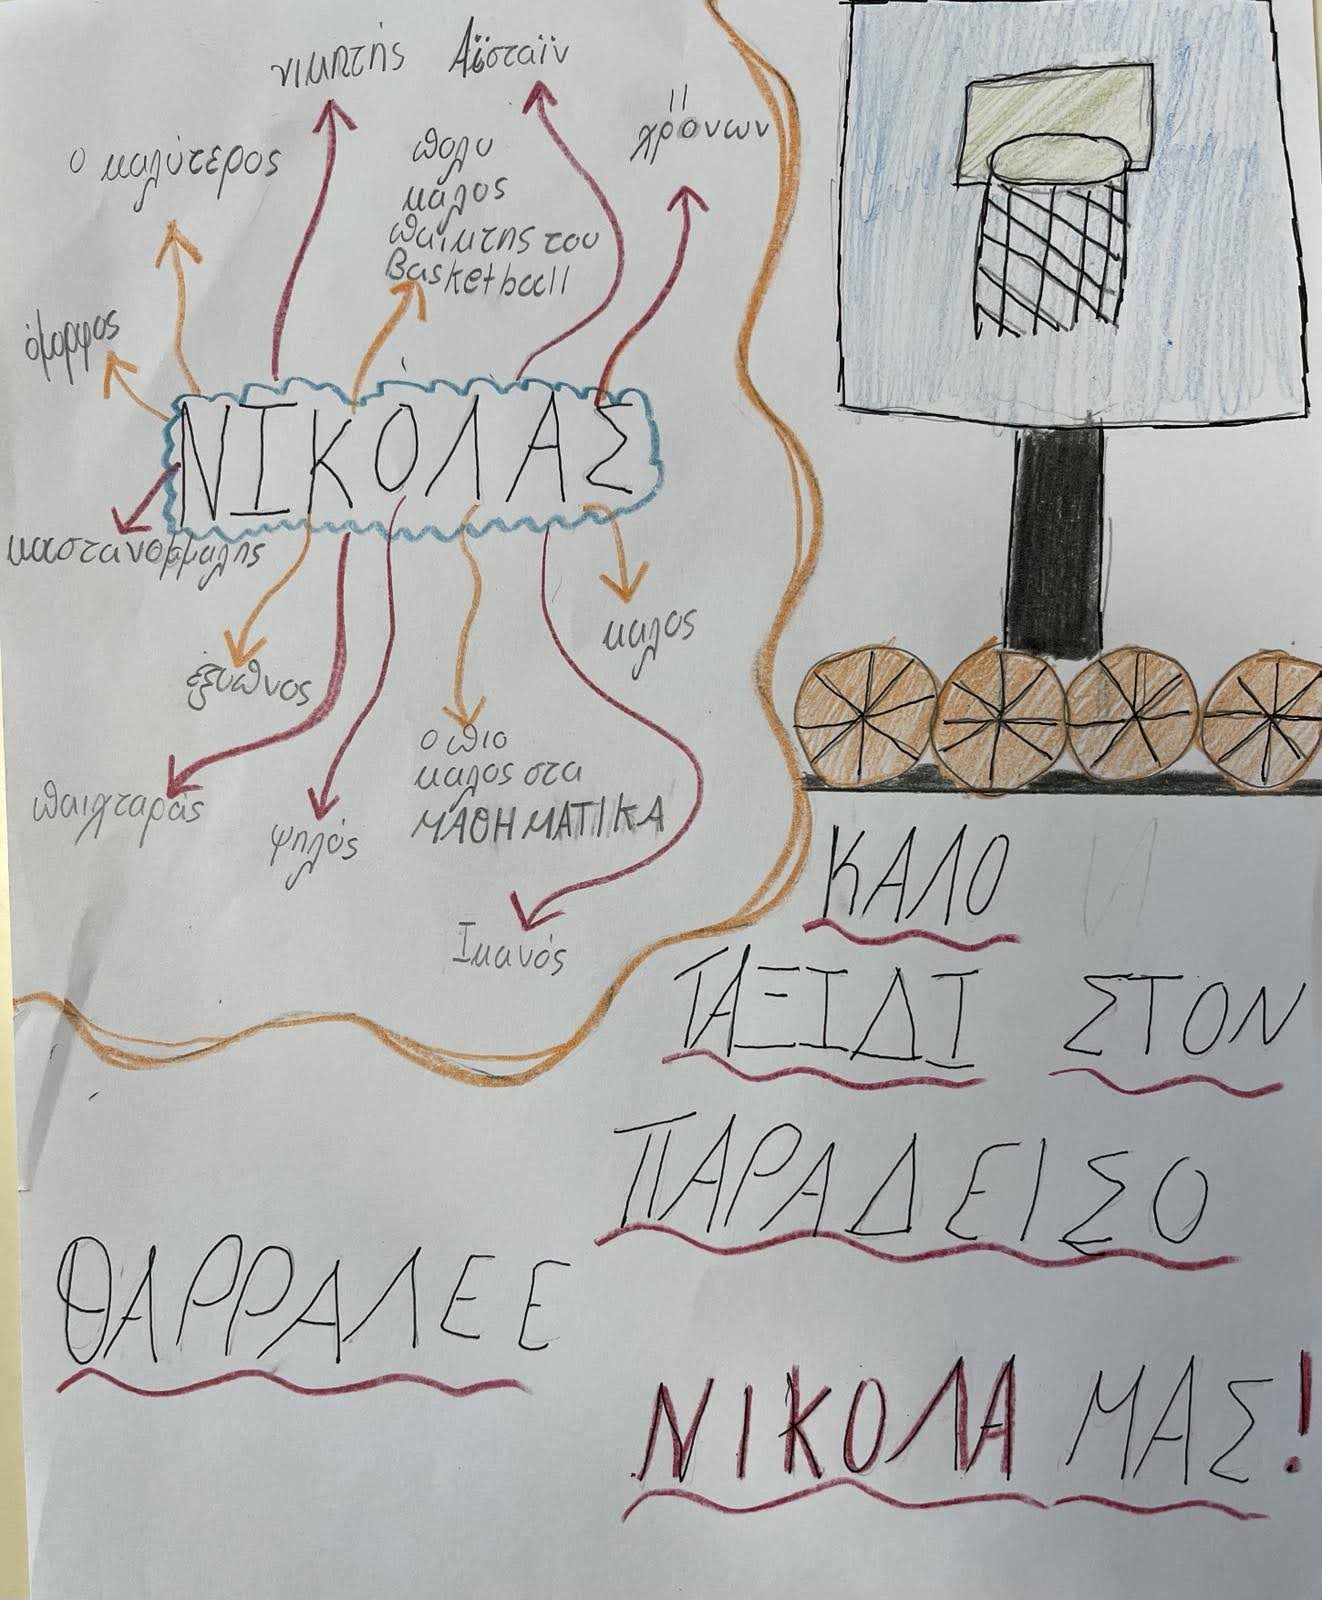 νικητής
Αϊσταϊν
11
χρόνων
ο καλύτερος
πολυ
καλος
παικτης του
Basketball
όμορφος
ΝΙΚΟΛΑΣ
καστανομάλης
καλος
έξυπνος
ο πιο
καλος στα
ΜΑΘΗΜΑΤΙΚΑ
παιχταράς
ψηλός
Ικανός
ΚΑΛΟ
ΤΑΞΙΔΙ ΣΤΟΝ
ΠΑΡΑΔΕΙΣΟ
ΘΑΡΡΑΛΕΕ
ΝΙΚΟΛΑ ΜΑΣ!